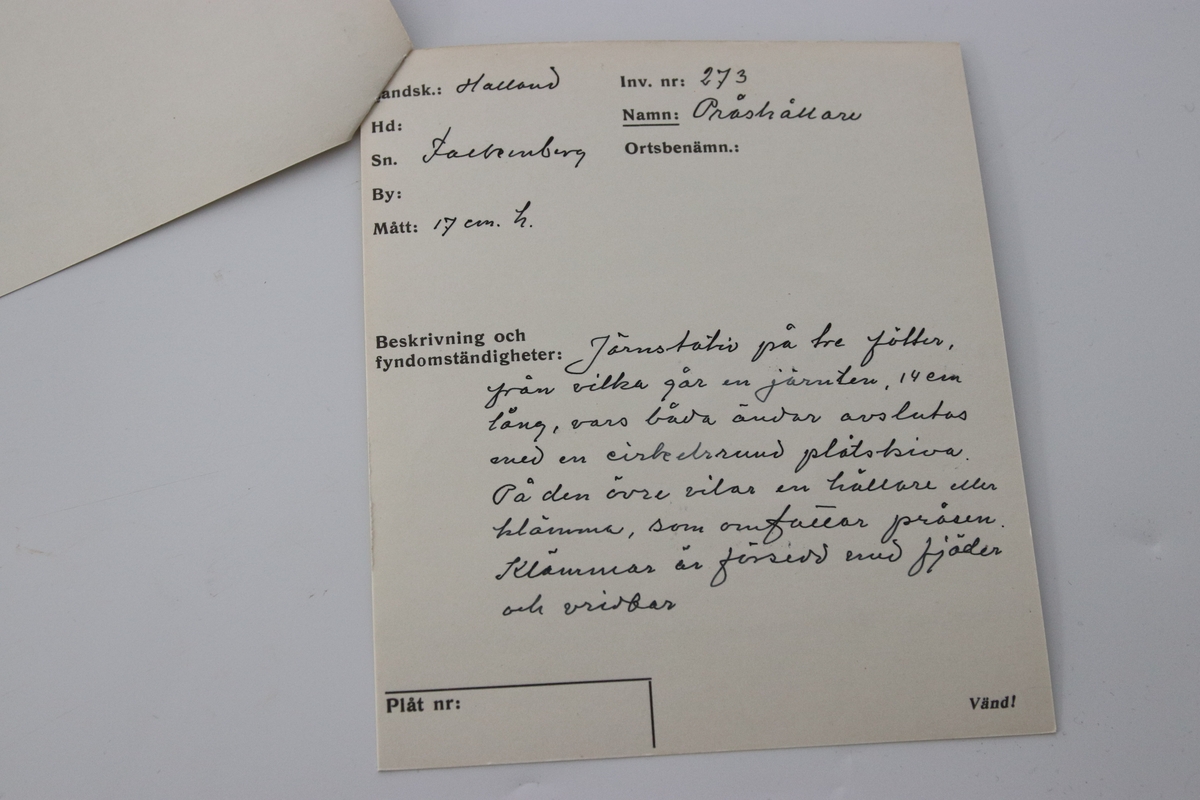 andsk.: Halland
Inv. nr: 273
Hd:
Namn: Pråshållare
Sn. Falkenberg
Ortsbenämn.:
By:
Mått: 17 cm. h.
Beskrivning och
fyndomständigheter: Järnstativ på tre fötter,
från vilka går en järnten, 14 cm
lång, vars båda ändar avslutas
med en cirkelrund plåtskiva.
På den övre vilar en hållare eller
klämma, som omfattar pråsen.
Klämmar är försedd med fjäder
och vridbar
Plåt nr:
Vänd!